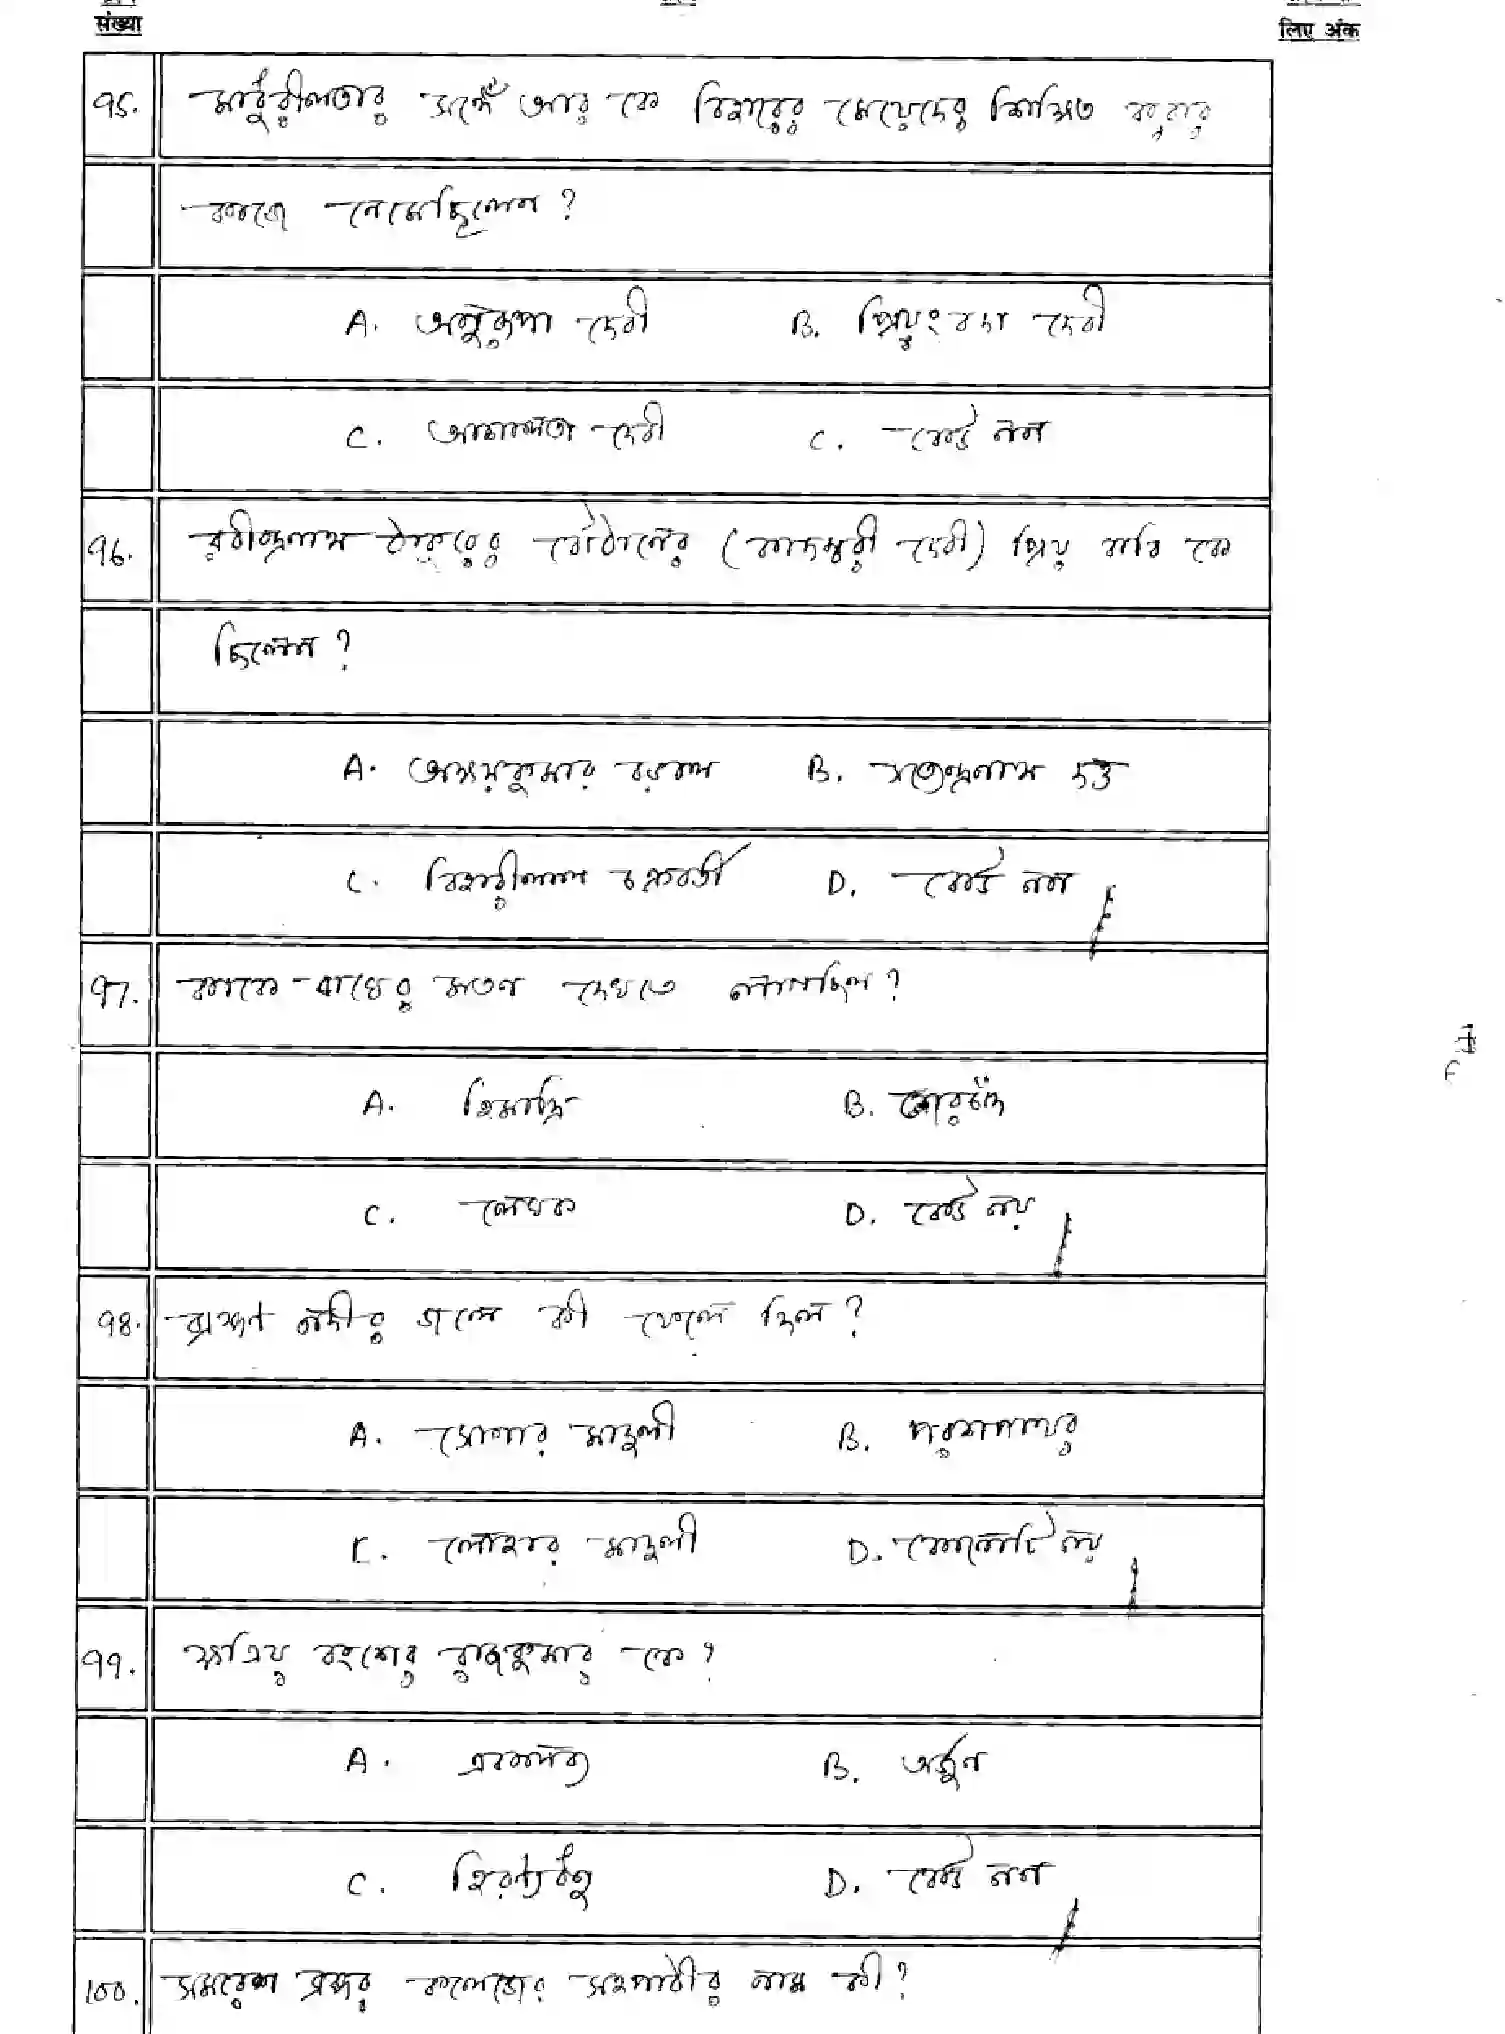 संख्या
लिए अंक
95. মাধুরীলতার সঙ্গে আর কে বিহারের মেয়েদের শিক্ষিত করার
কাজে নেমেছিলেন ?
A. অনুরূপা দেবী B. প্রিয়ংবদা দেবী
C. আশালতা দেবী C. কেউ নন
96. রবীন্দ্রনাথ ঠাকুরের বৌঠানের (কাদম্বরী দেবী) প্রিয় কবি কে
ছিলেন ?
A. অক্ষয়কুমার বড়াল B. সত্যেন্দ্রনাথ দত্ত
C. বিহারীলাল চক্রবর্তী D. কেউ নন
97. কাকে বাঘের মতন দেখতে লাগছিল ?
A. হিমাদ্রি B. গোরাচাঁদ
C. লেখক D. কেউ নয়
98. ব্রাহ্মণ নদীর জলে কী ফেলে দিল ?
A. সোনার মাদুলী B. পরশপাথর
C. লোহার মাদুলী D. কোনোটি নয়
99. ক্ষত্রিয় বংশের রাজকুমার কে ?
A. একলব্য B. অর্জুন
C. হিরণ্যধনু D. কেউ নন
100. সমরেশ বসুর কলেজের সহপাঠীর নাম কী ?